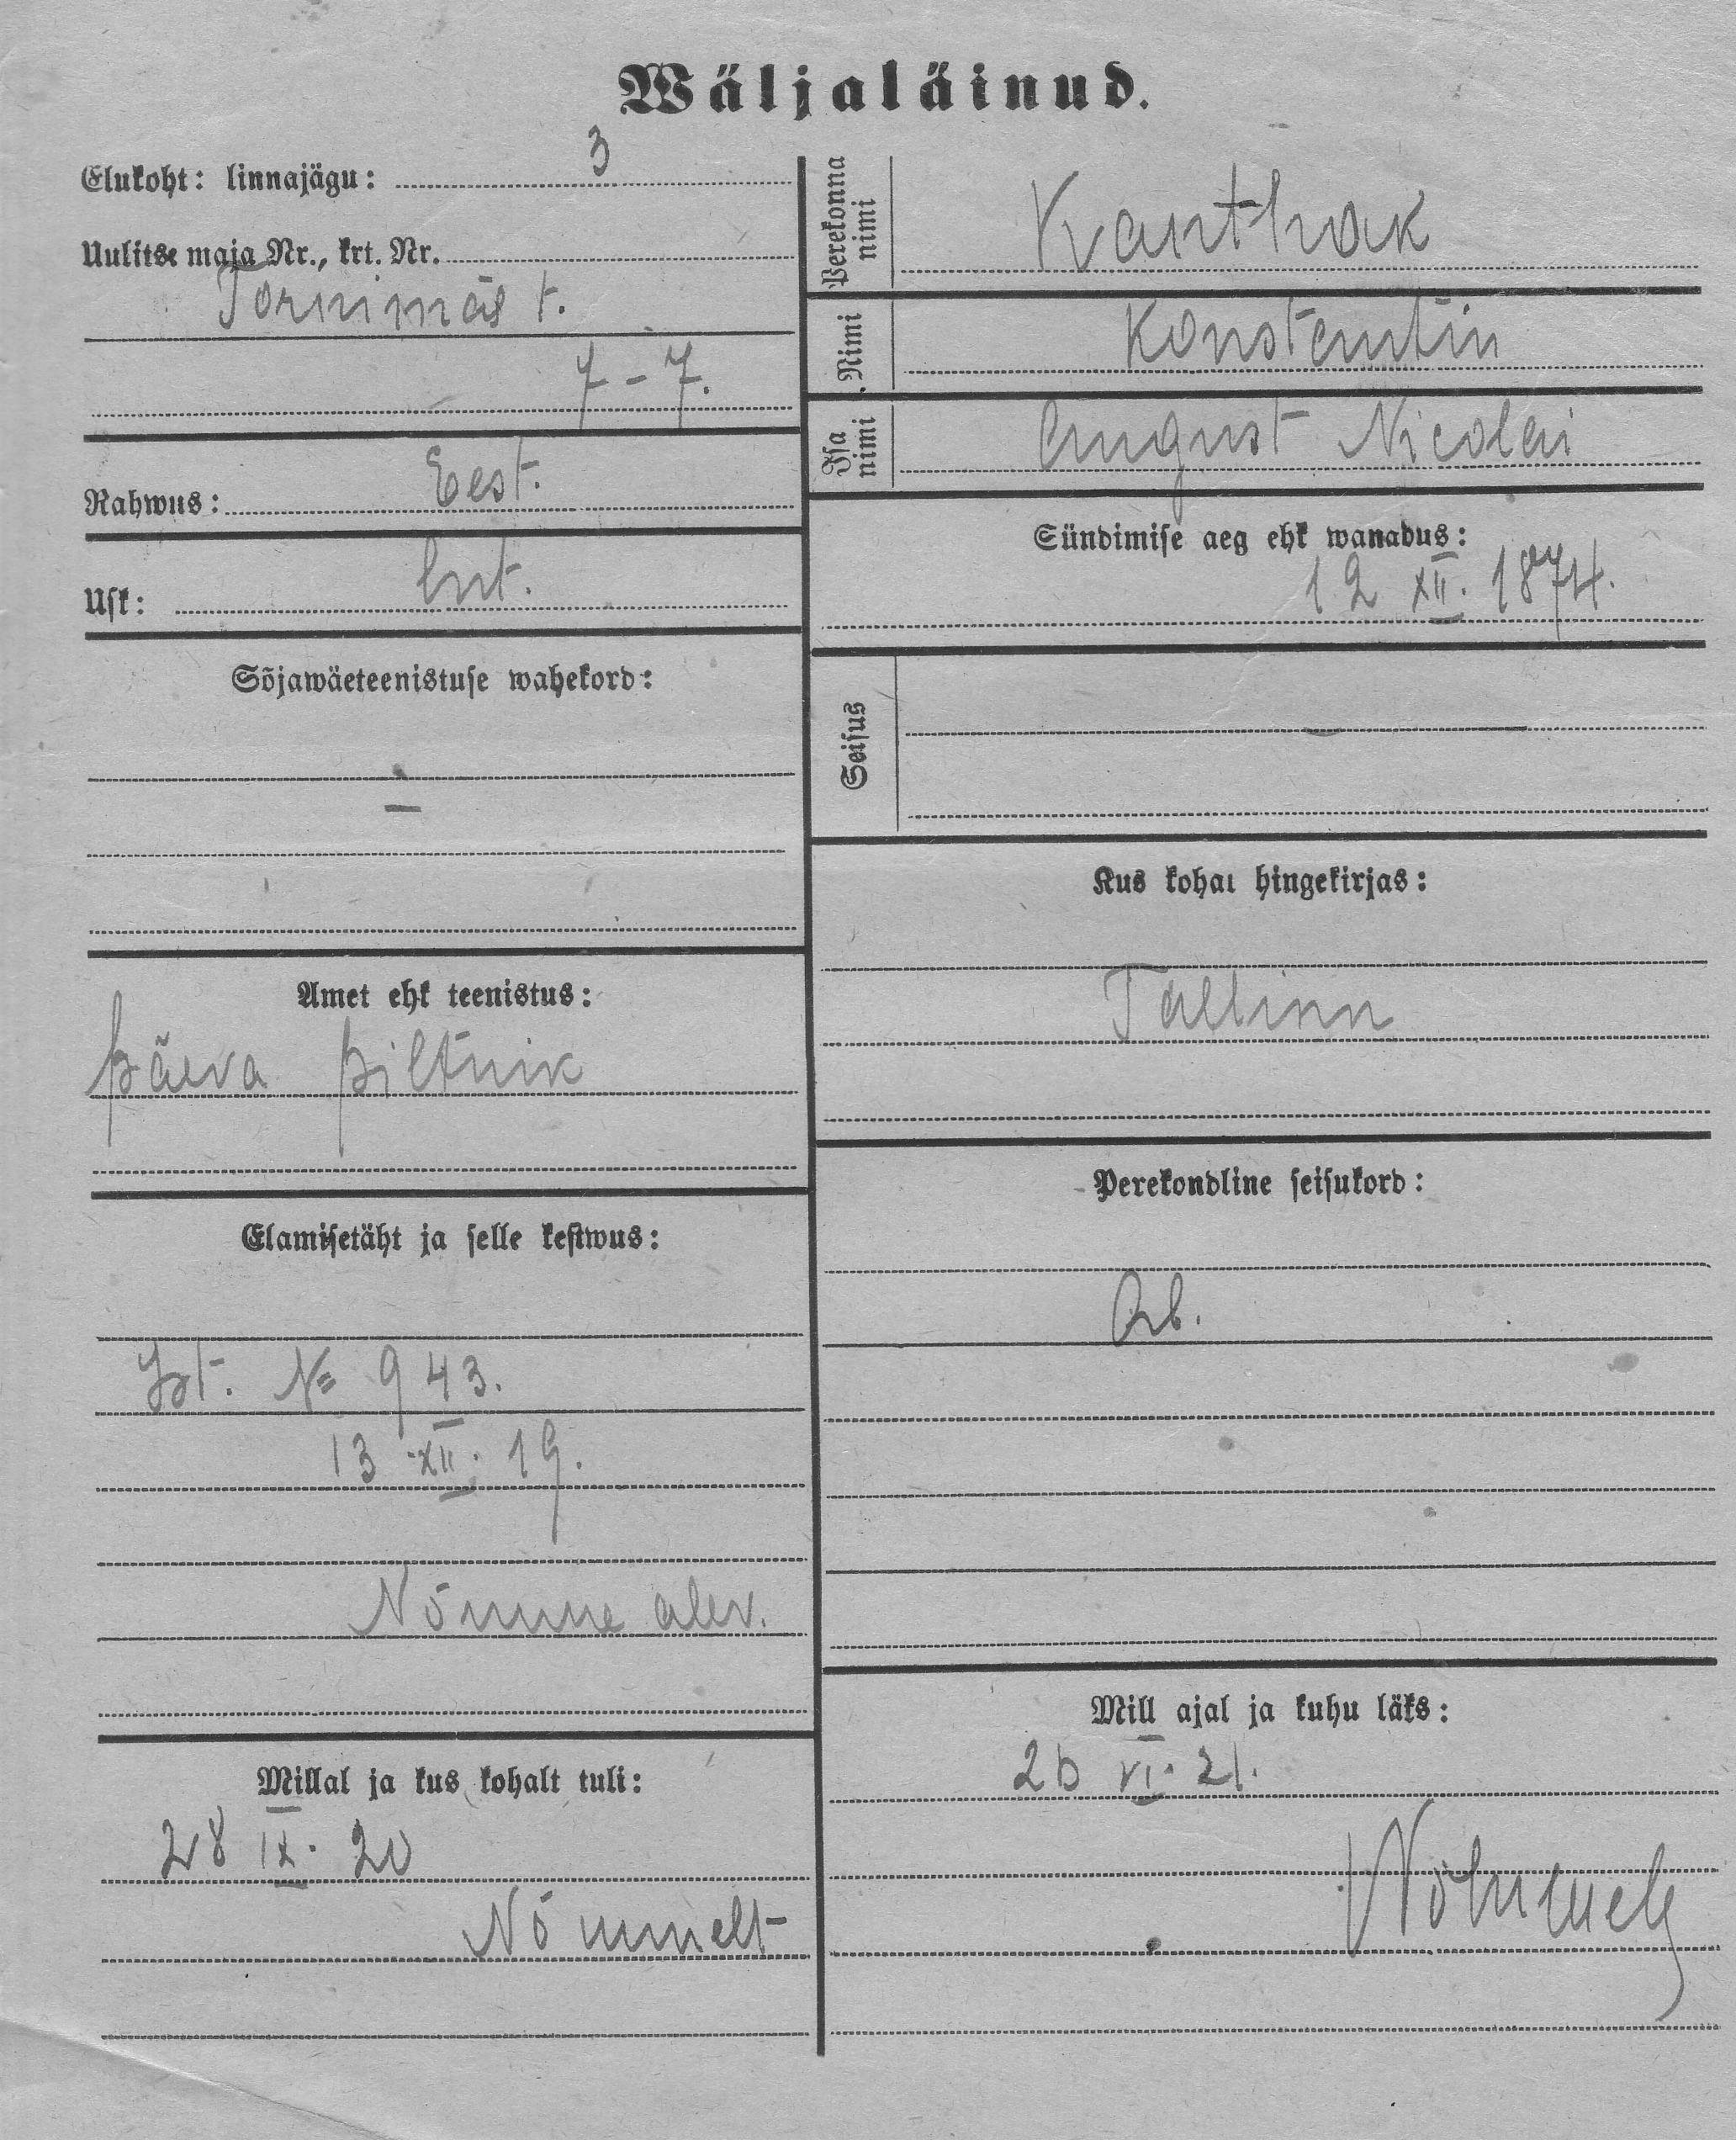 Wäljaläinud.
Elukoht: linnajägu: 3
Uulitse maja Nr., krt. Nr.
Tornimäe t.
7-7.
Rahwus: Eest.
Usk: Lut.
Sõjawäeteenistuse wahekord:
—
Amet ehk teenistus:
päeva piltnik
Elamisetäht ja selle kestwus:
№ 943.
13 XII. 19.
Nõmme alev.
Millal ja kus kohalt tuli:
28 IX. 20
Nõmmelt
Perekonna nimi
Kanthak
Nimi
Konstantin
Isa nimi
August Nicolai
Sündimise aeg ehk wanadus:
12 XII. 1874.
Seisus
—
Kus kohal hingekirjas:
Tallinn
Perekondline seisukord:
Ab.
Mill ajal ja kuhu läks:
26 VI. 21.